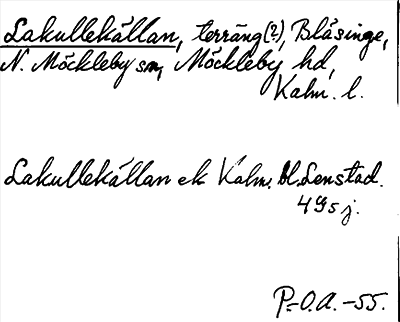 Lakullekällan, terräng (?), Blåsinge,
N. Möckleby sn, Möckleby hd,
Kalm. l.
Lakullekällan ek Kalm. bl. Lenstad.
4 9 5 j.
P.-O.A. -55.